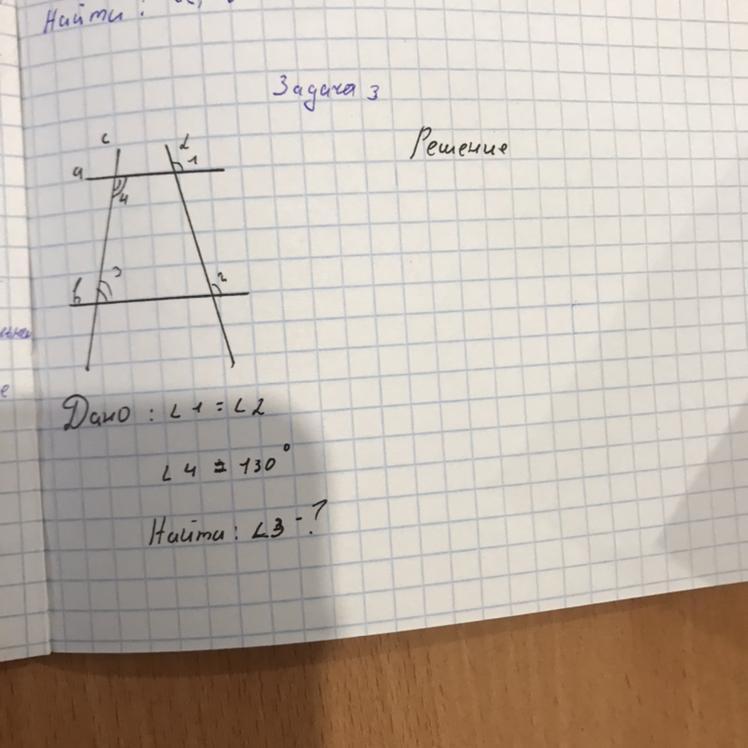 Найти :
Задача 3
Решение
c
d
a
1
4
3
2
b
Дано : ∠1 = ∠2
∠4 = 130°
Найти : ∠3 - ?